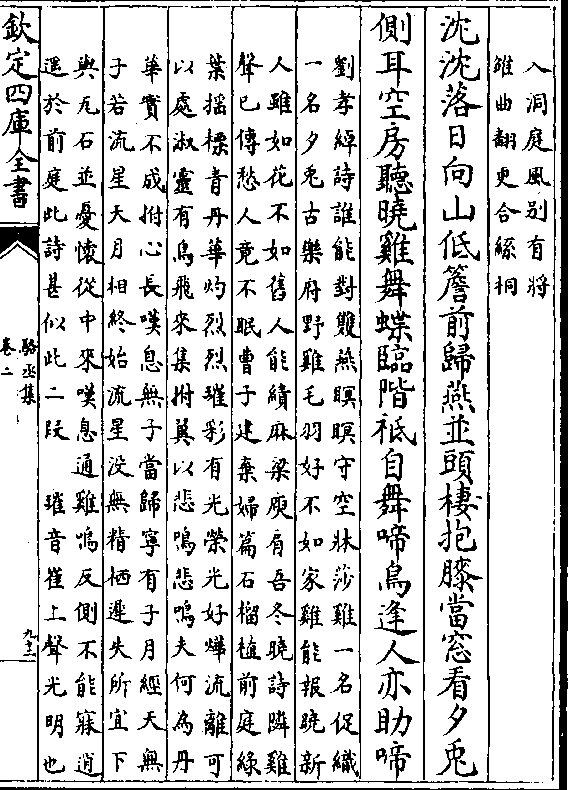 入洞庭風别有將
雉曲翻更合絲桐
沈沈落日向山低簷前歸燕並頭棲抱膝當窓看夕兎
側耳空房聽曉雞舞蝶臨階祇自舞啼鳥逢人亦助啼
劉孝綽詩誰能對雙燕瞑瞑守空牀莎雞一名促織
一名夕兎古樂府野雞毛羽好不如家雞能報曉新
人雖如花不如舊人能績麻梁庾肩吾冬曉詩隣雞
聲已傳愁人竟不眠曹子建棄婦篇石榴植前庭緑
葉揺縹青丹華灼烈烈璀彩有光榮光好㷸流離可
以處淑靈有鳥飛來集拊翼以悲鳴悲鳴夫何為丹
華實不成拊心長嘆息無子當歸寧有子月經天無
子若流星天月相終始流星没無精栖遲失所宜下
與瓦石並憂懷從中來嘆息通雞鳴反側不能寐逍
遥於前庭此詩甚似此二段　璀音崔上聲光明也
欽定四庫全書
駱丞集
卷二